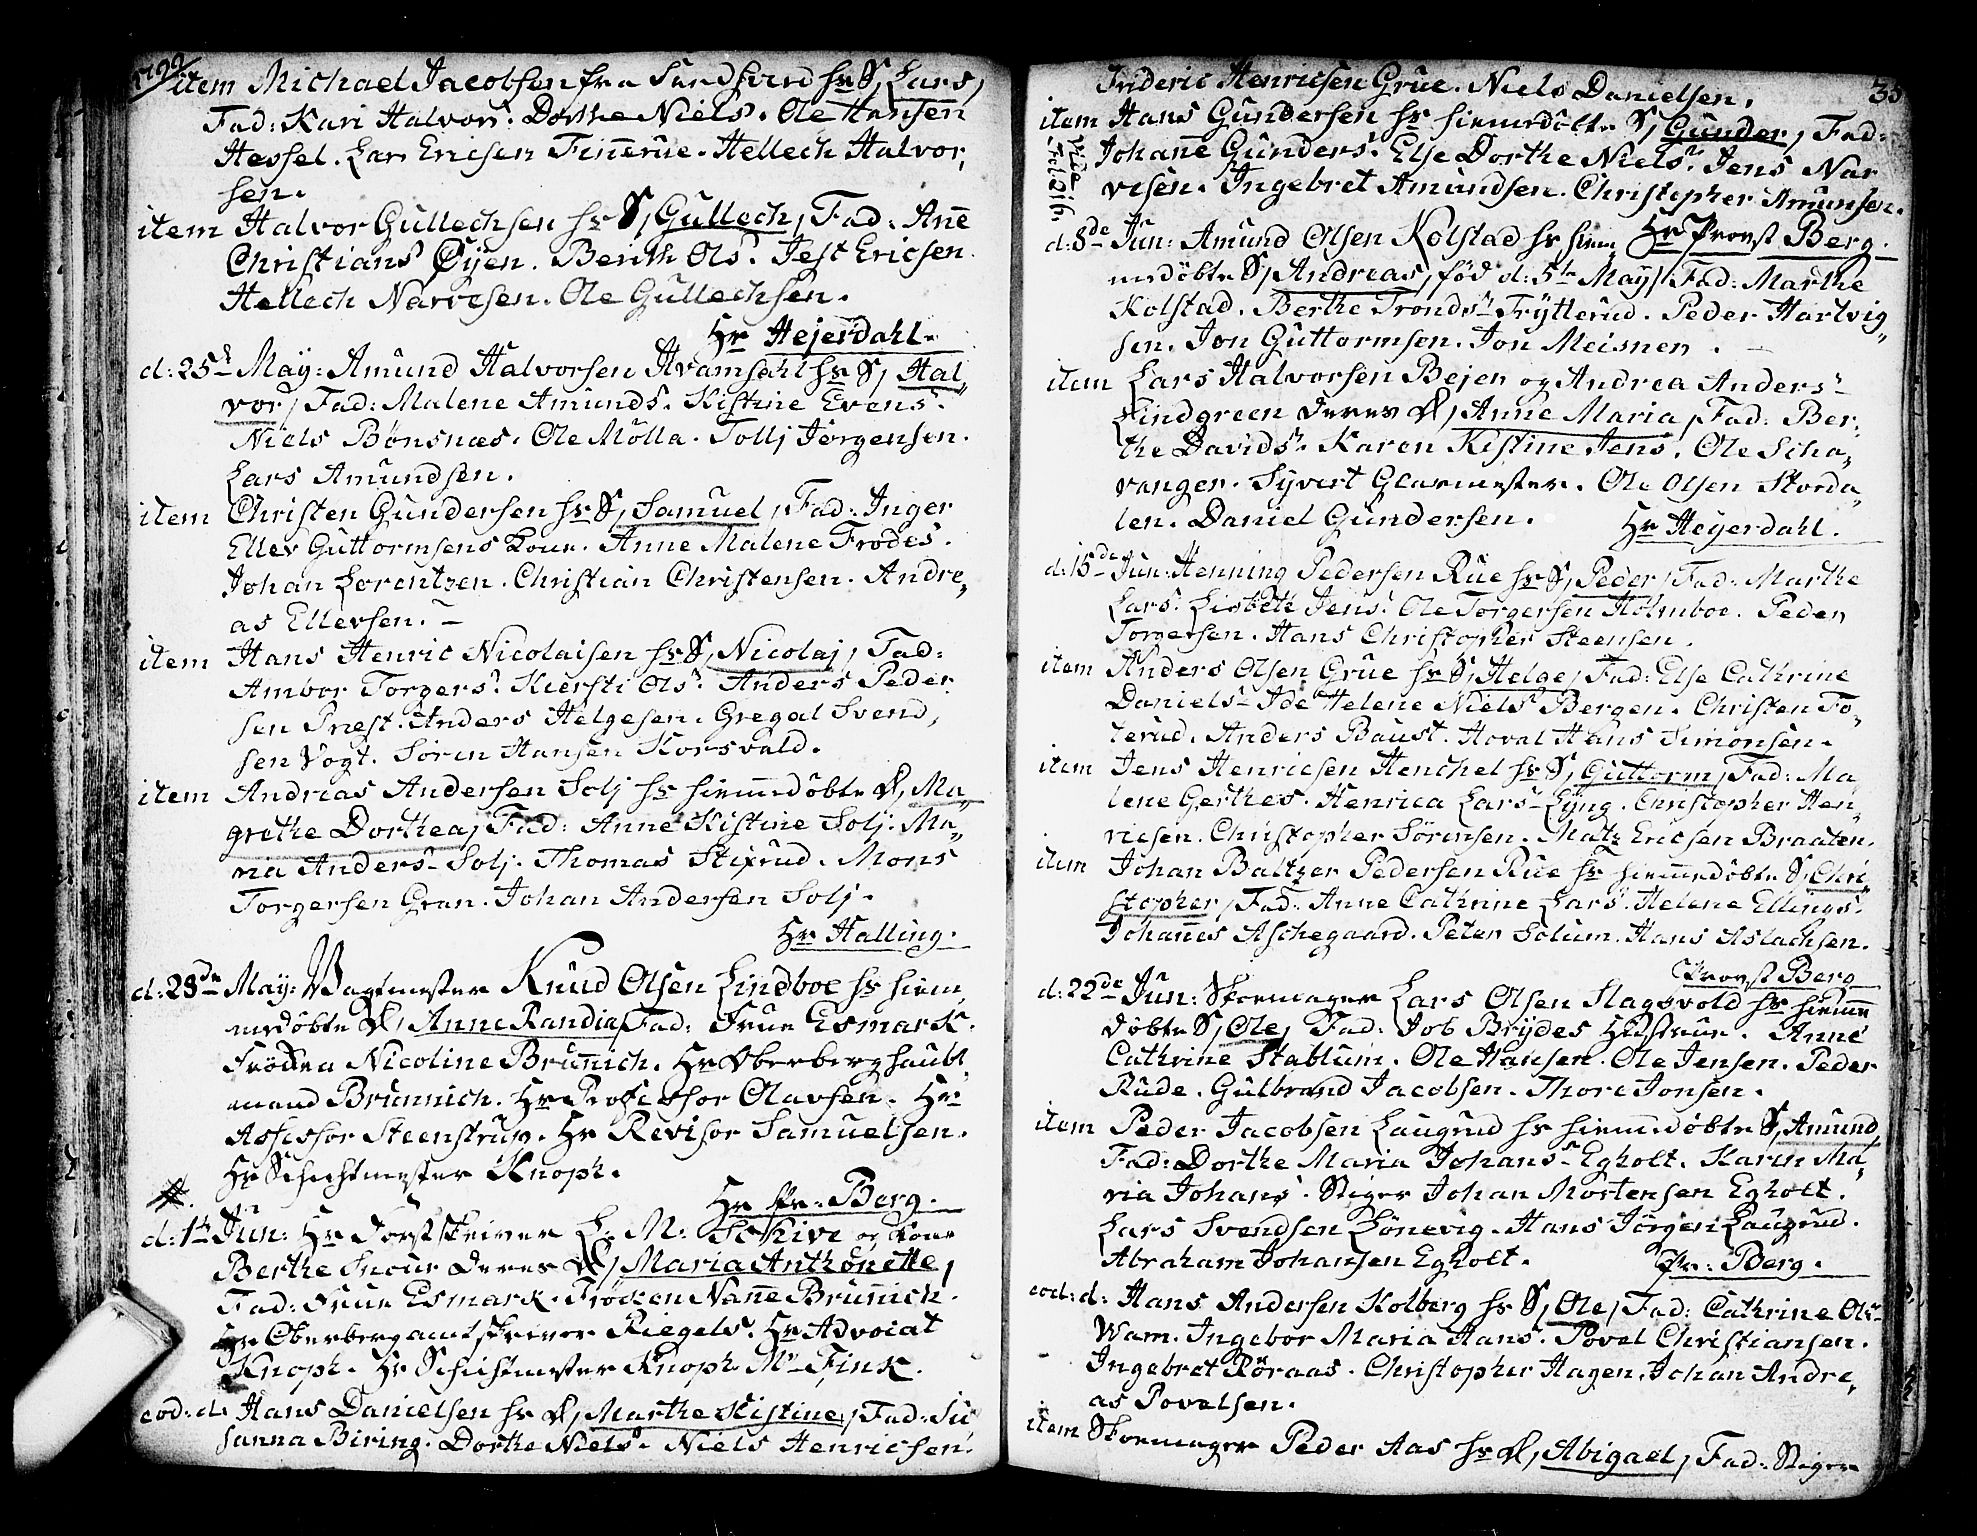 1792
item Michael Jacobsen fra Sundhord hs S, Lars,
Fad: Kari Halvors. Dorthe Niels. Ole Hansen
Hessel. Lars Ericsen Finnerue. Hellech Halvor,
sen.
item Halvor Gullechsen hs S, Gullech, Fad: Ane
Christians Øyen. Berith Ols. Jest Ericsen
Hellech Narvesen. Ole Gullechsen.
Hr Hejerdahl.
d: 25 May: Amund Halvorsen Hvamsahl hs S, Hal,
vor, Fad: Malene Amunds. Kistine Evens.
Niels Bønsnæs. Ole Mølla. Tollj Jørgensen.
Lars Amundsen.
item Christen Gundersen hs S, Samuel, Fad: Inger
Eller Guttormsens Kone. Anne Malene Frodes.
Johan Lorentzen. Christian Christensen. Andre,
as Ellevsen.
item Hans Henric Nicolaisen hs S, Nicolaj, Fad:
Ambor Torgers. Kiersti Ols. Anders Peder
sen Prest. Anders Helgesen. Gregal Svend,
sen Vogt. Soren Hansen Korsvald.
item Andreas Andersen Solj hs hiemmedøbte D, Ma,
grethe Dorthea, Fad: Anne Kistine Solj. Ma,
ria Anders Solj. Thomas Stixrud. Mons
Torgersen Gran. Johan Andersen Solj.
Hr Halling.
d: 28de May: Vagtmester Knud Olsen Lindboe hs hiem,
medøbte D, Anne Randia, Fad: Frue Esmark.
Frøken Nicoline Brunich. Hr Oberberghaubt
mand Brunnich. Hr Professor Olavsen. Hr
Assessor Steenstrup. Hr Revisor Samuelsen.
Hr Schichtmester Knoph.
Hr Pr: Berg.
d: 1te Jun: Hr Forstskriver L. M: Schive og Kone
Berthe Smour Deres D, Maria Anthonette,
Fad: Frue Esmark. Frøken Nanne Brunnich.
Hr Oberbergamtskriver Riegels. Hr Advocat
Knoph. Hr Schichtmester Knoph Mr Fink.
eod: d: Hans Danielsen hs D, Marthe Kistine, Fad: Su
sanna Biring. Dorthe Niels. Niels Henricsen.
35
Frideric Henricsen Grue. Niels Danielsen.
item Hans Gundersen hs hiemedøbte S, Gunder, Fad:
vide Fol 216.
Johanne Gunders. Else Dorthe Niels. Jens Nar
vesen. Ingebret Amundsen. Christopher Amunsen.
Hr Provst Berg.
d: 8de Jun: Amund Olsen Kolstad hs hiem,
medøbte S, Andreas, fød d: 5te May, Fad: Marthe
Kolstad. Berthe Tronds Frytterud. Peder Hartvig,
sen. Jon Guttormsen. Jon Meisner.
item Lars Halvorsen Bejer og Andrea Anders
Lindgreen Deres D, Anne Maria, Fad: Ber,
the Davids. Karen Kistine Jens. Ole Scha,
vanger. Syvert Glarmester. Ole Olsen Storda,
len. Daniel Gundersen.
Hr Heyerdahl.
d: 15de Jun: Henning Pedersen Rue hs S, Peder, Fad: Marthe
Lars. Lisbeth Jens. Ole Torgersen Holmboe. Peder
Torgersen. Hans Christopher Steensen.
item Anders Olsen Grue hs S, Helge, Fad: Else Cathrine
Daniels. Ide Helene Niels Bergen. Christen To,
terud. Anders Baust. Hoval Hans Simonsen.
item Jens Henricsen Henchel hs S, Guttorm, Fad: Ma,
lene Gerthes. Henrica Lars Lyng. Christopher Hen,
ricsen. Christopher Sörensen. Matz Ericsen Braaten.
item Johan Baltzer Pedersen Rue hs hiemmedøbte S, Chri
stopher, Fad: Anne Cathrine Lars. Helene Ellings.
Johannes Aschegaard. Peter Solum. Hans Aslachsen.
Provst Berg
d: 22de Jun: Skoemager Lars Olsen Slagsvold hs hiemme
døbte S, Ole, Fad: Job Brydes Hustrue. Anne
Cathrine Stablum. Ole Hansen. Ole Jensen. Peder
Rude. Gulbrand Jacobsen. Thore Jonsen.
item Peder Jacobsen Laugrud hs hiemmedøbte S, Amund,
Fad: Dorthe Maria Johans Egholt. Karen Ma,
ria Johans. Stiger Johan Mortensen Egholt.
Lars Svendsen Lønevig. Hans Jörgen Laugrud.
Abraham Johansen Egholt.
Pr: Berg.
eod: d: Hans Andersen Kolberg hs S, Ole, Fad: Cathrine Ols
Wam. Ingebor Maria Hans. Povel Christiansen.
Ingebret Röraas. Christopher Hagen. Johan Andre,
as Povelsen.
item Skoemager Peder Aas hs D, Abigael, Fad: Stiger